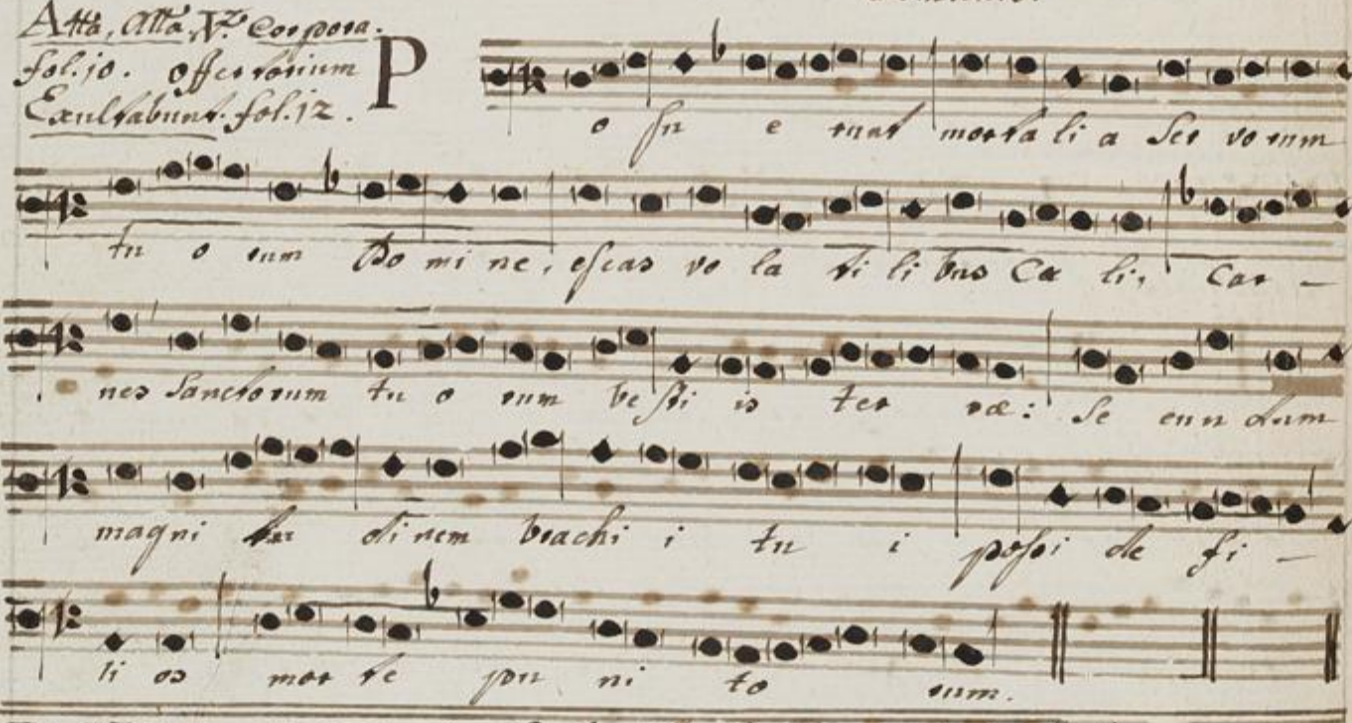 Atta, Atta, V. Corpora.
fol. 10. Offertorium
Exultabunt. fol. 12.
P o su e runt morta li a Ser vo rum
tu o rum Do mi ne, escas vo la ti li bus Cæ li, Car -
nes Sanctorum tu o rum be sti is ter ræ: Se cun dum
magni tu di nem brachi i tu i possi de fi -
li os mor te pu ni to rum.